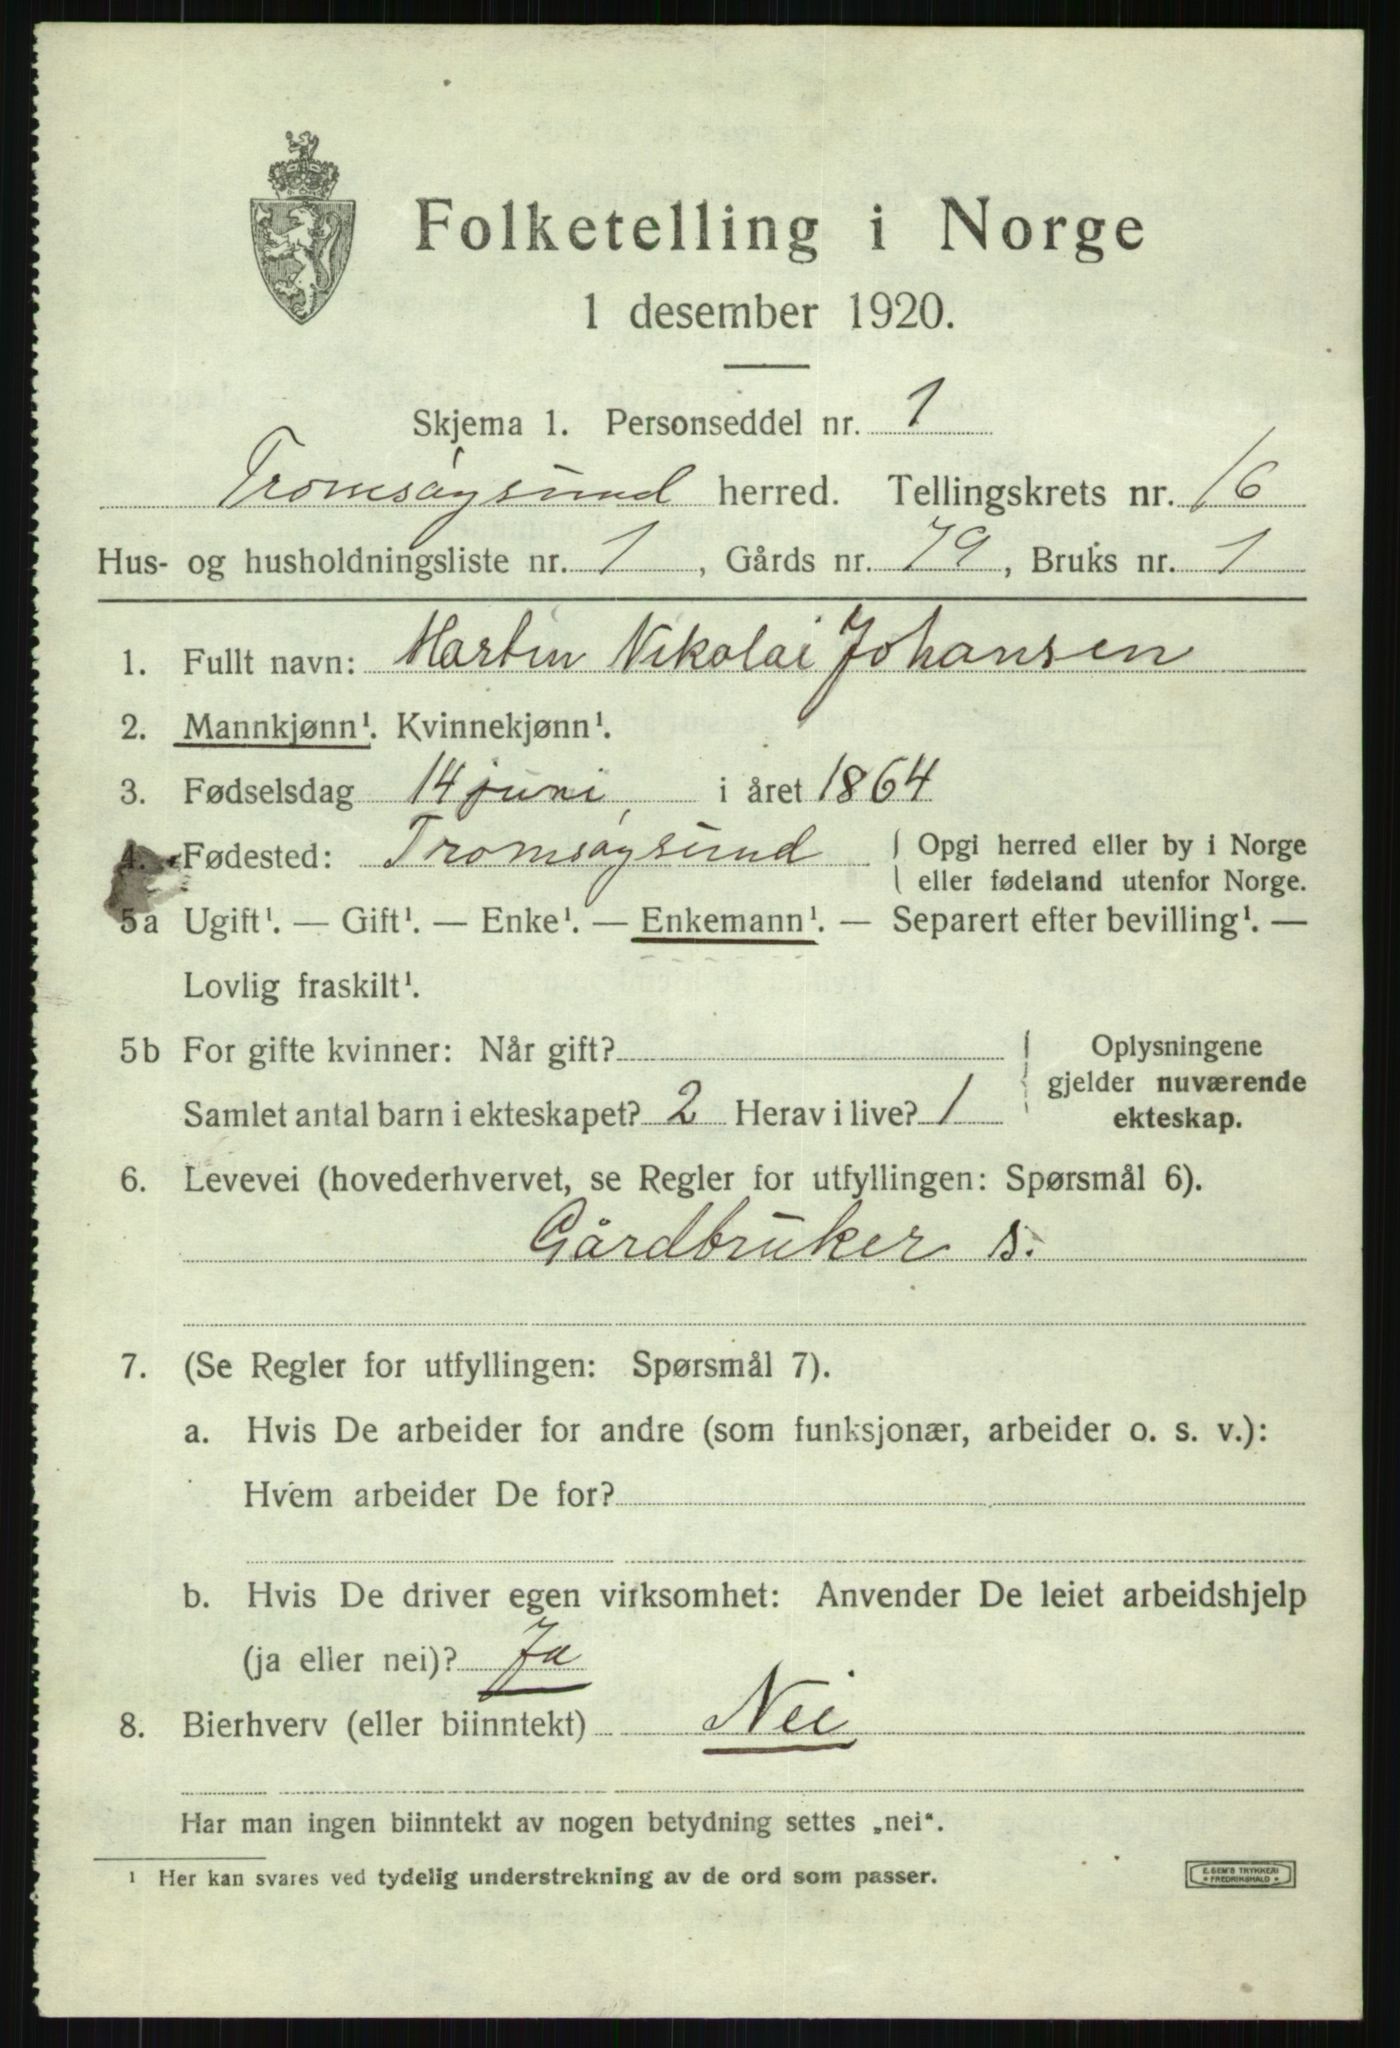 Folketelling i Norge
1 desember 1920.
Skjema 1. Personseddel nr. 1
Tromsøysund herred. Tellingskrets nr. 16
Hus- og husholdningsliste nr. 1, Gårds nr. 79, Bruks nr. 1
1. Fullt navn: Martin Nikolai Johansen
2. Mannkjønn¹. Kvinnekjønn¹.
3. Fødselsdag 14 juni, i året 1864
4. Fødested: Tromsøysund Opgi herred eller by i Norge
eller fødeland utenfor Norge.
5a Ugift¹. — Gift¹. — Enke¹. — Enkemann¹. — Separert efter bevilling¹. —
Lovlig fraskilt¹.
5b For gifte kvinner: Når gift? Oplysningene
gjelder nuværende
Samlet antal barn i ekteskapet? 2 Herav i live? 1 ekteskap.
6. Levevei (hovederhvervet, se Regler for utfyllingen: Spørsmål 6).
Gårdbruker s.
7. (Se Regler for utfyllingen: Spørsmål 7).
a. Hvis De arbeider for andre (som funksjonær, arbeider o. s. v.):
Hvem arbeider De for?
b. Hvis De driver egen virksomhet: Anvender De leiet arbeidshjelp
(ja eller nei)? Ja
8. Bierhverv (eller biinntekt) Nei
Har man ingen biinntekt av nogen betydning settes „nei“.
¹ Her kan svares ved tydelig understrekning av de ord som passer.
E. SEM'S TRYKKERI
FREDRIKSHALD